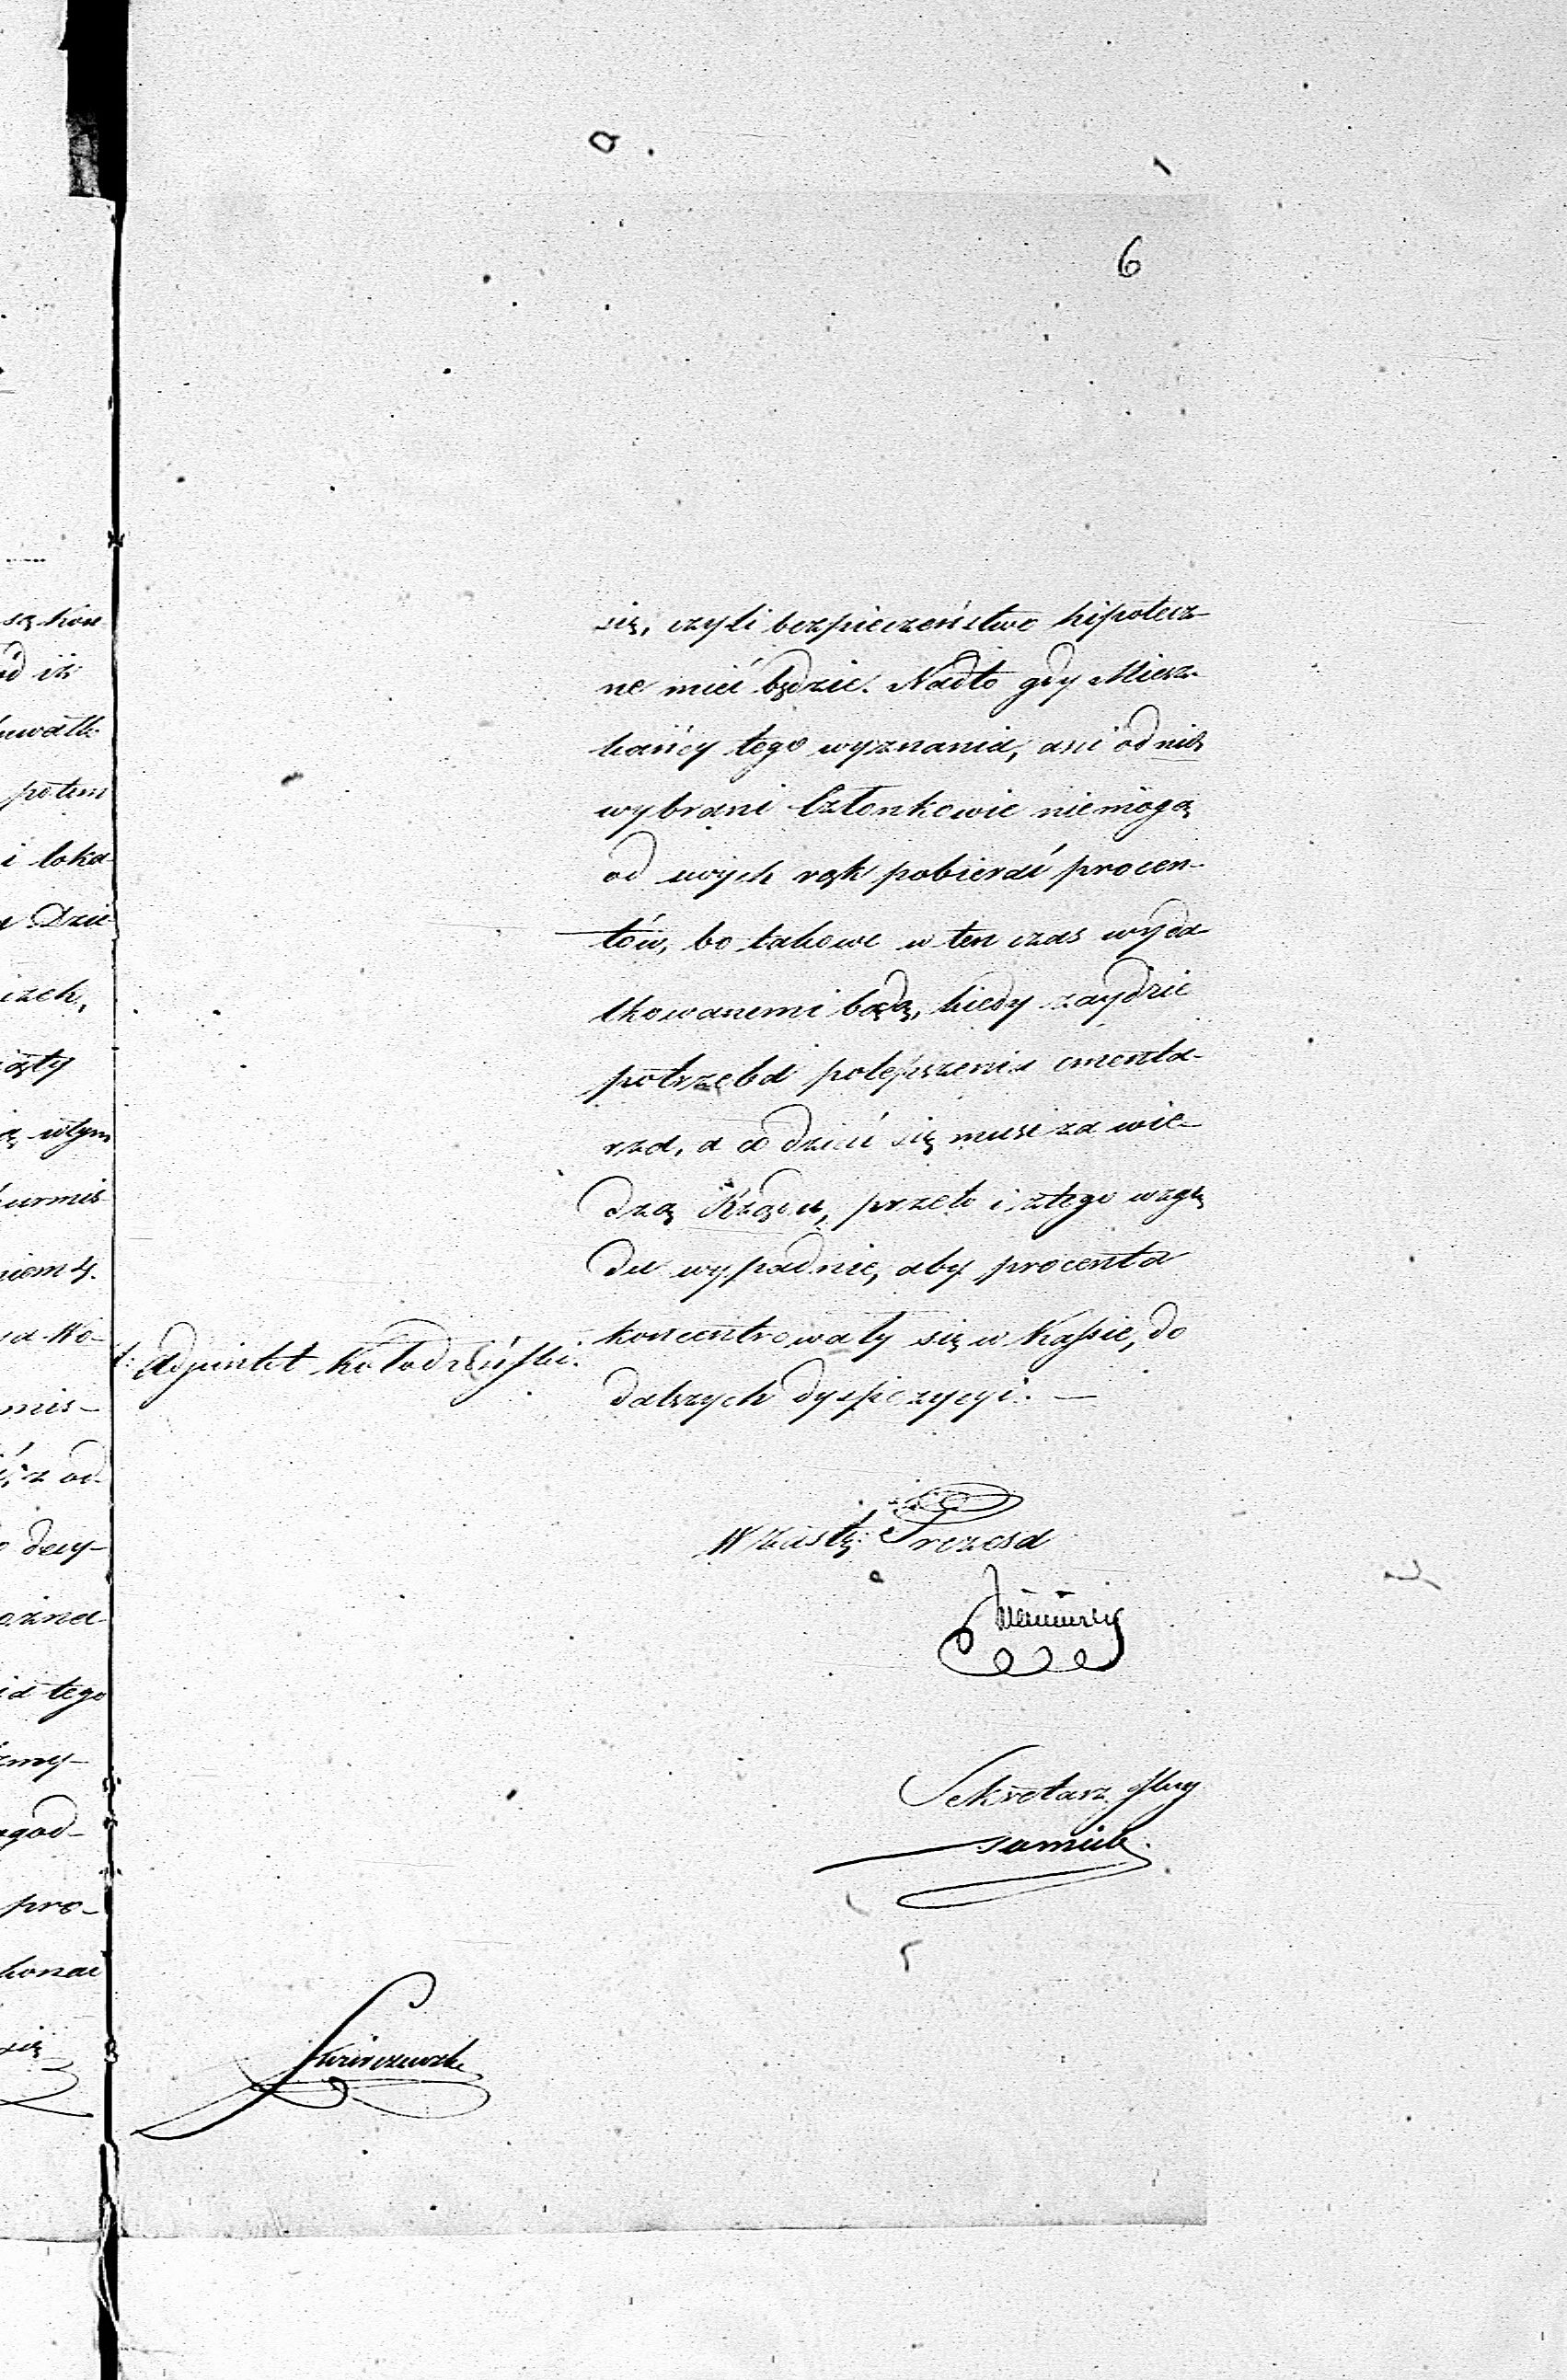 6
się, czyli bezpieczeństwo hipotecz-
ne mieć będzie. Nadto gdy Miesz-
kańcy tego wyznania, ani od nich
wybrani Członkowie niemogą
od swych rąk pobierać procen-
tów, bo takowe w ten czas wyda-
tkowanemi będą, kiedy zaydzie
potrzeba polepszenia cmenta-
rza, a co dziać się musi za wie-
dzą Rządu, przeto i z tego wzglę
du wypadnie, aby procenta
koncentrowały się w Kassie, do
dalszych dyspozycyi. —
Adjunkt Kołodziński.
W Zastę: Prezesa
Sekretarz Jlny
są kon
potem
i loka-
Dzie
czek,
wtym
niem
mis-
z od-
tego
pro-
konać
się